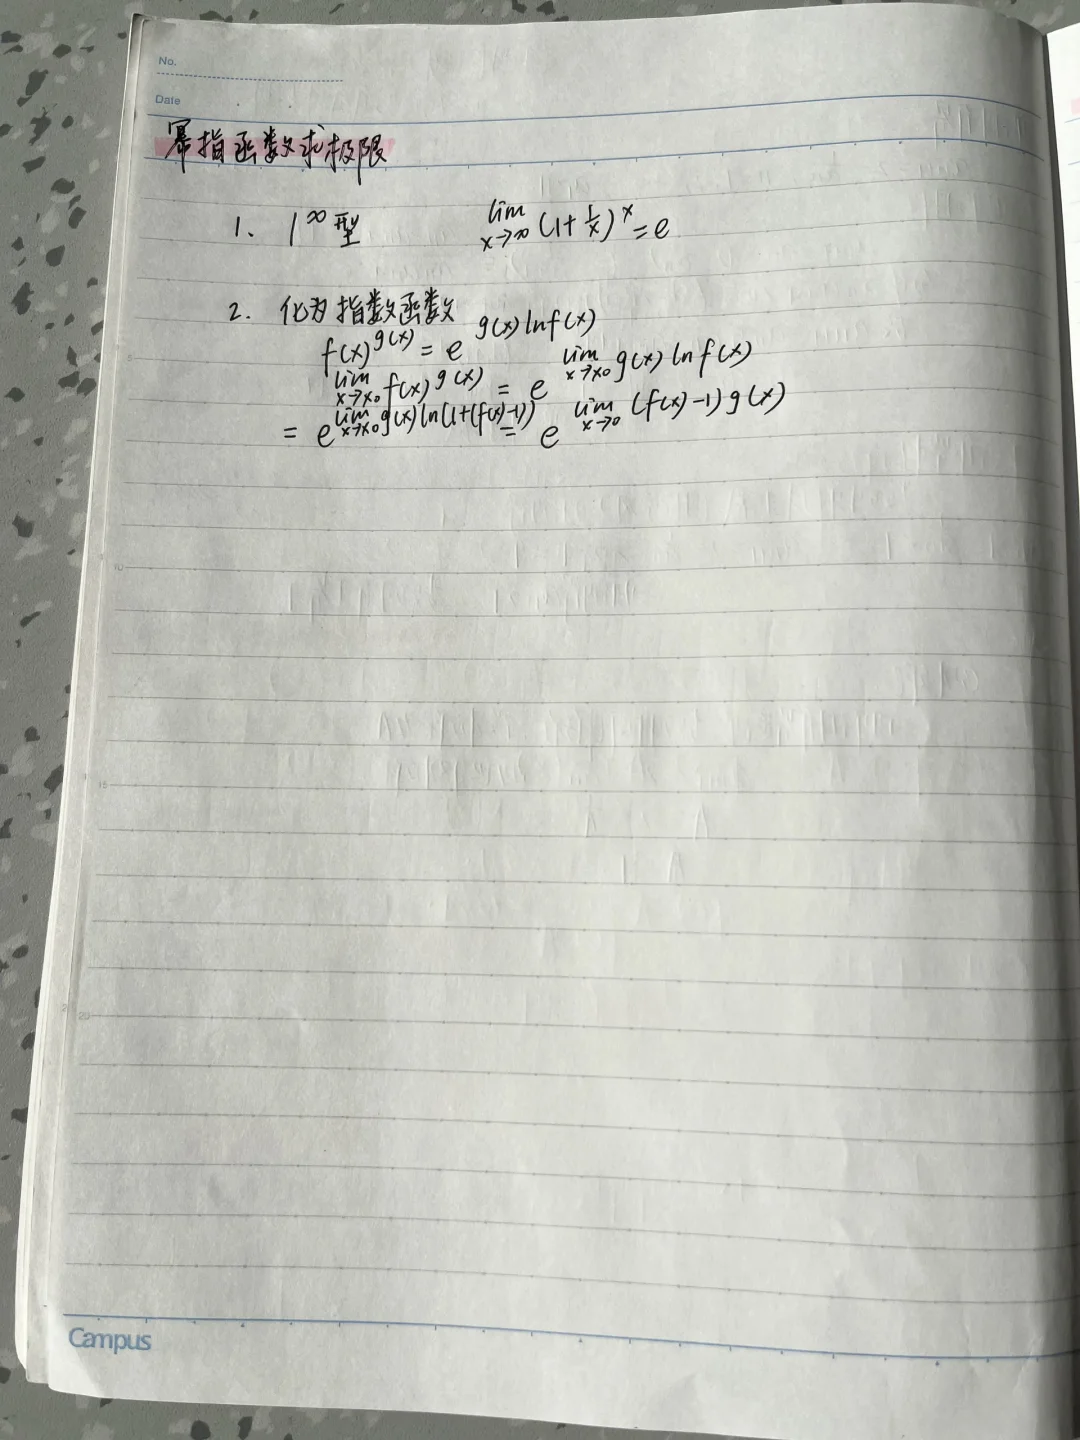 No.
Date
幂指函数求极限
1. 1^∞型 lim x→∞ (1+1/x)^x = e
2. 化为指数函数
f(x)^g(x) = e^g(x)lnf(x)
lim x→x₀ f(x)^g(x) = e^lim x→x₀ g(x)lnf(x)
= e^lim x→x₀ g(x)ln(1+(f(x)-1)) = e^lim x→0 (f(x)-1)g(x)
Campus